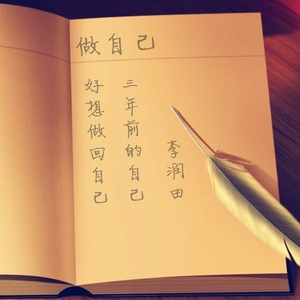 做自己
好想做回自己
三年前的自己
李润田